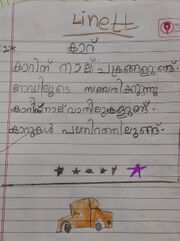 Linett
കാറ്
കാറിന് നാല് ചക്രങ്ങളുണ്ട്.
റോഡിലൂടെ സഞ്ചരിക്കുന്നു
കാറിന് നാല് വാതിലുകളുണ്ട്.
കാറുകൾ പലനിറത്തിലുണ്ട്.